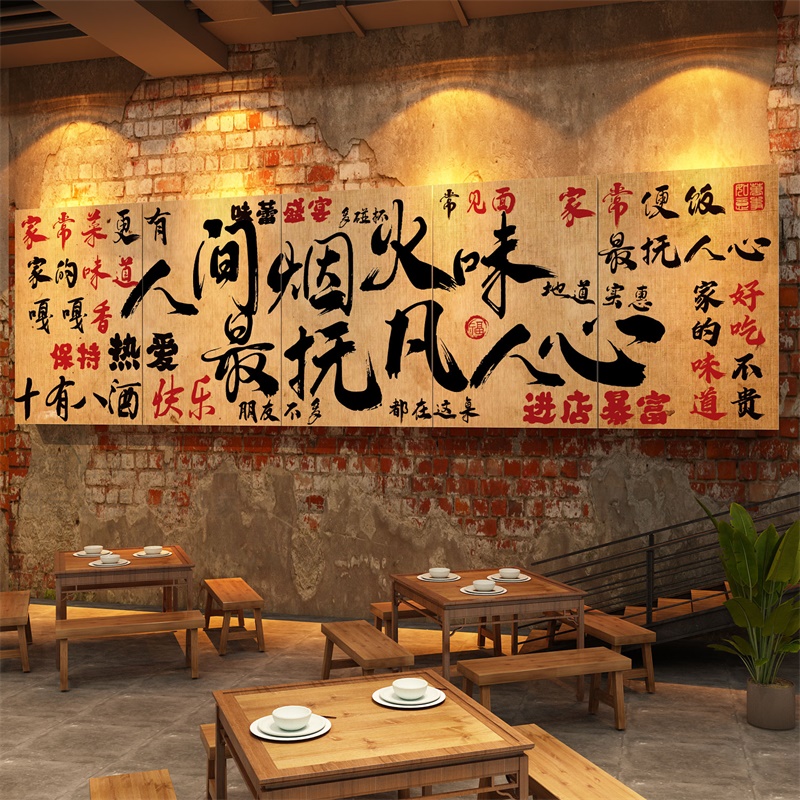 家常菜更有
家的味道
嘎嘎香
保持热爱
十有八酒
快乐
味蕾盛宴
多碰杯
人间烟火味
最抚凡人心
福
朋友不多
都在这桌
常见面
家常便饭
最抚人心
地道实惠
进店暴富
家的味道
好吃不贵